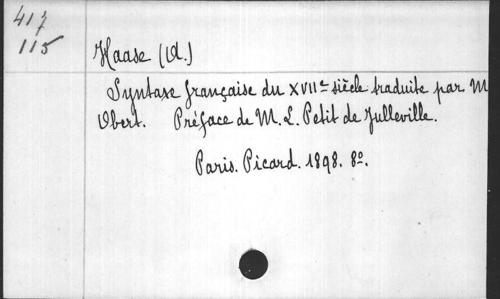 417
115
Haase (A.)
Syntaxe française du XVIIe siècle traduite par M
Obert. Préface de M. L. Petit de Julleville.
Paris. Picard. 1898. 8º.